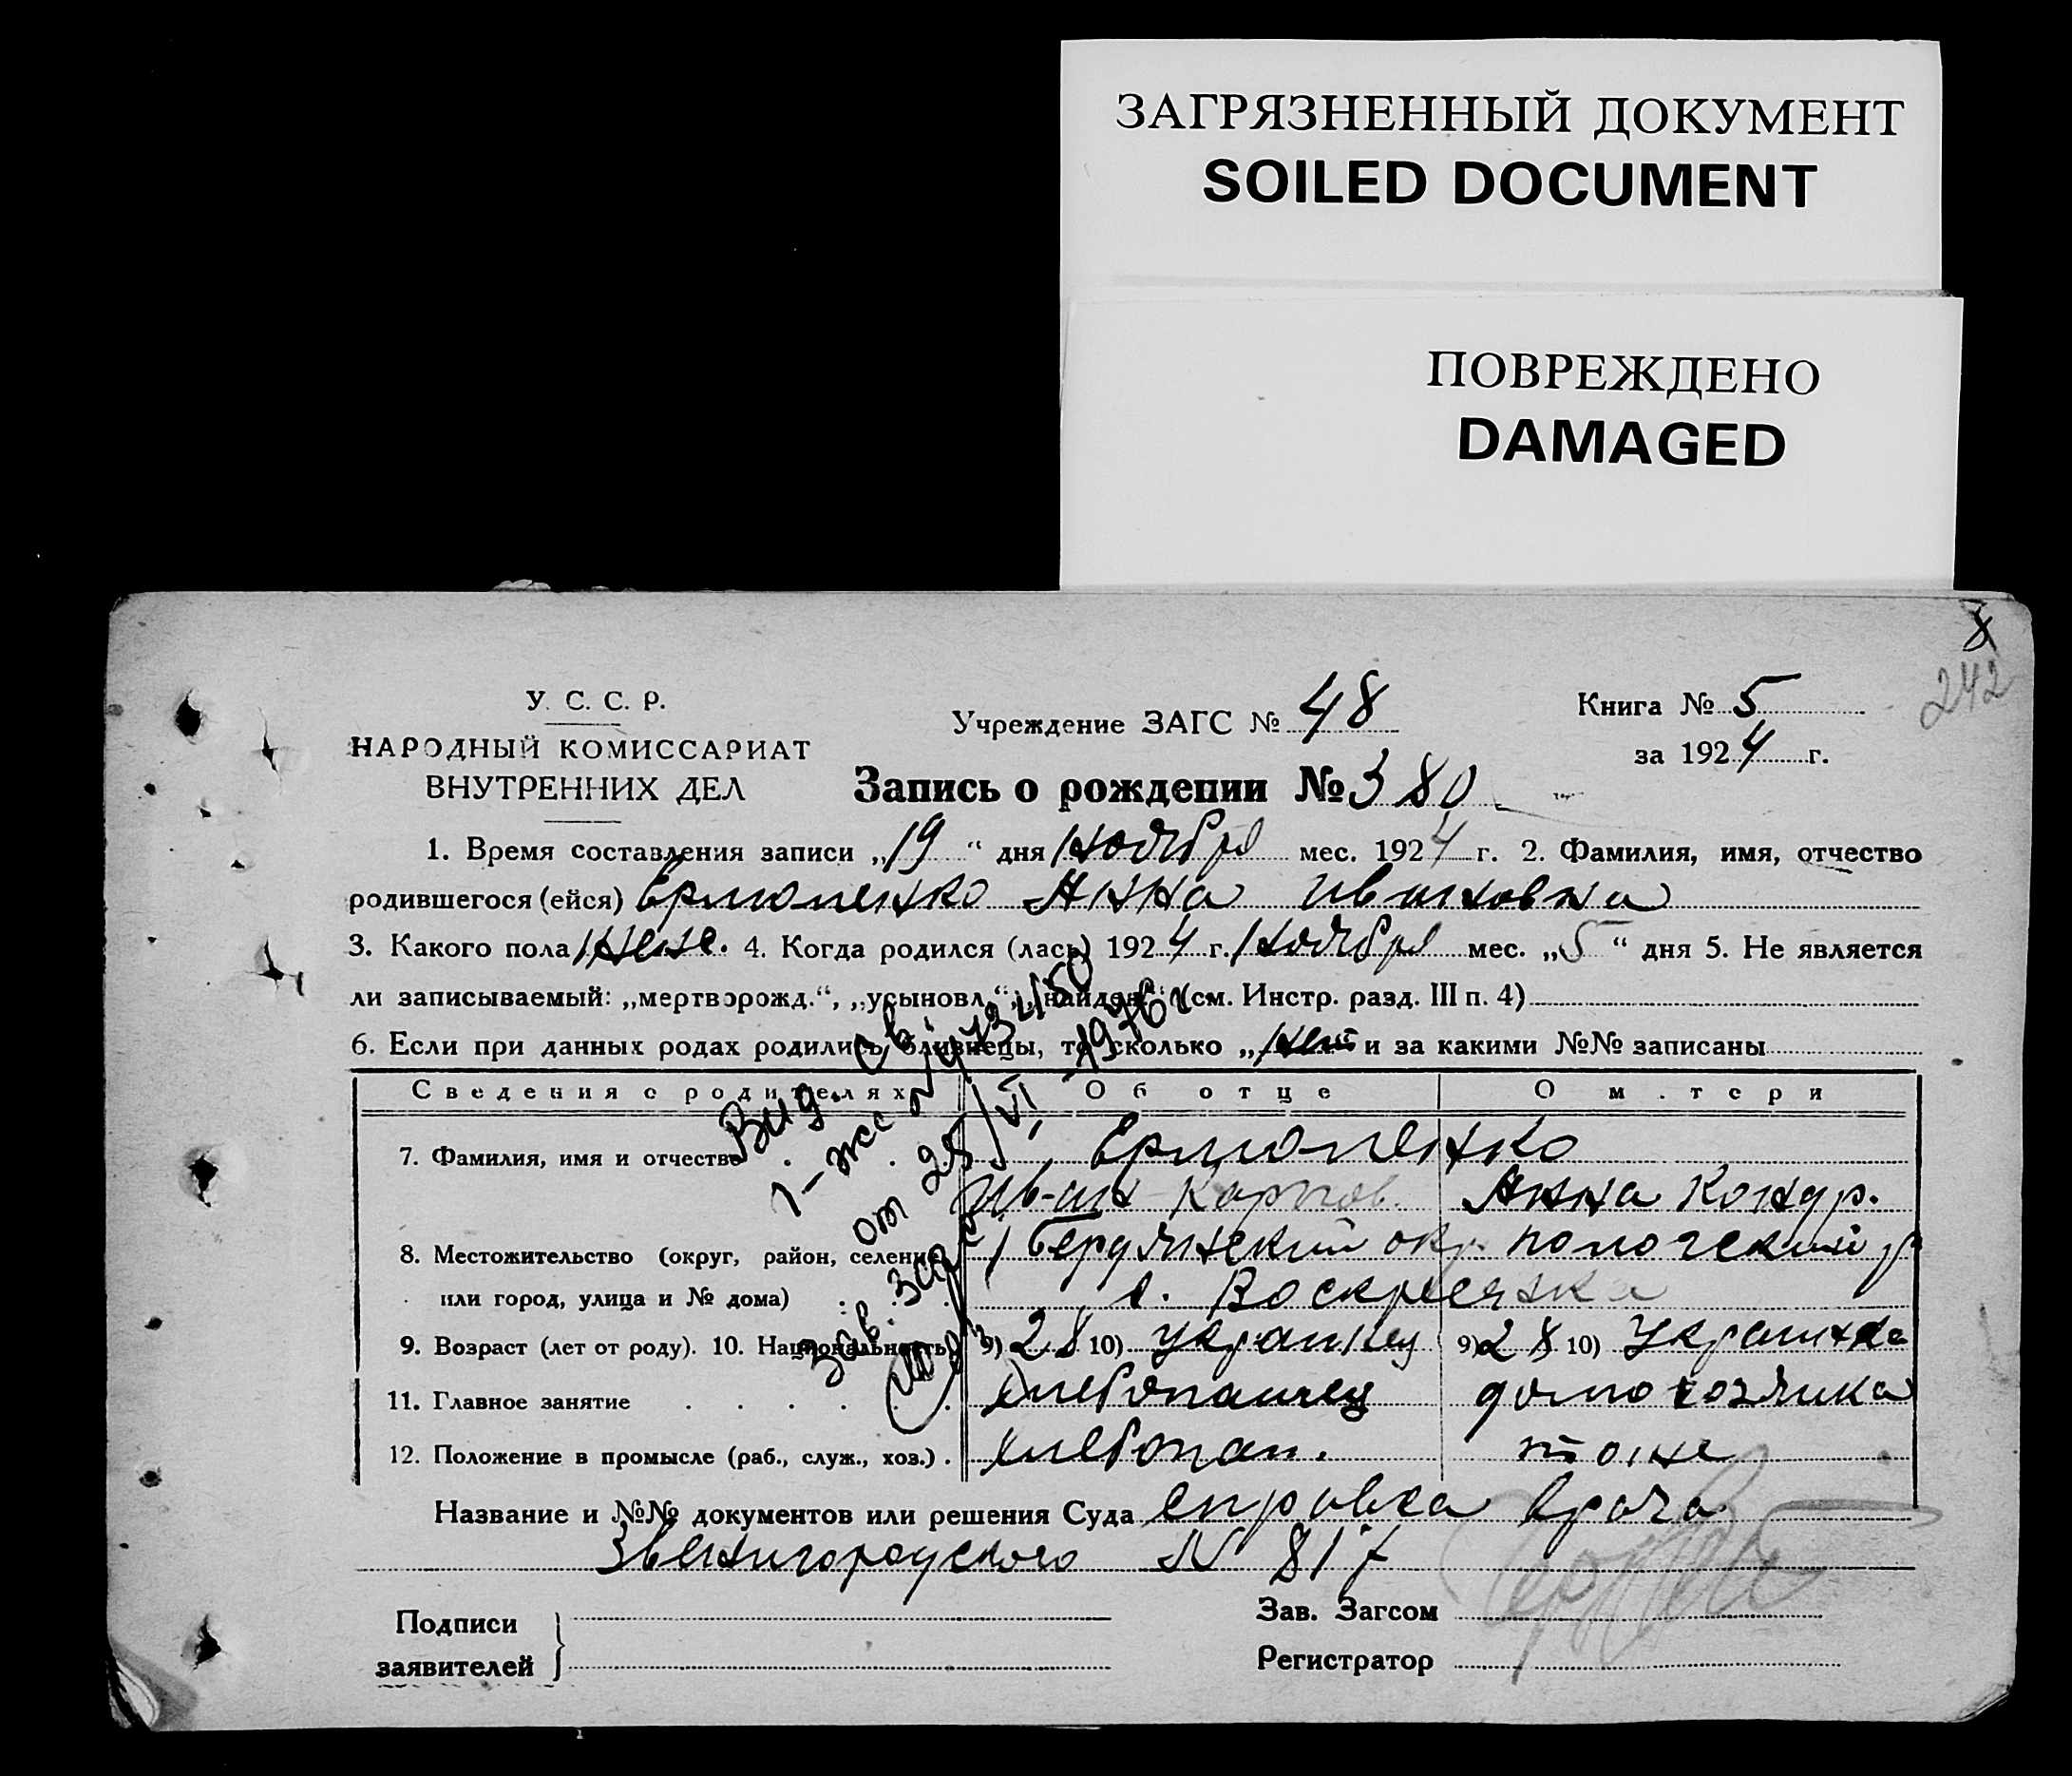 ЗАГРЯЗНЕННЫЙ ДОКУМЕНТ
SOILED DOCUMENT
ПОВРЕЖДЕНО
DAMAGED
8
242
У. С. С. Р.
НАРОДНЫЙ КОМИССАРИАТ
ВНУТРЕННИХ ДЕЛ
Учреждение ЗАГС № 48
Книга № 5
за 1924 г.
Запись о рождении № 380
1. Время составления записи „19“ дня Ноября мес. 1924 г. 2. Фамилия, имя, отчество
родившегося (ейся) Ермоленко Анна Ивановна
3. Какого пола Жен. 4. Когда родился (лась) 1924 г. Ноября мес. „5“ дня 5. Не является
ли записываемый: „мертворожд.“, „усыновл.“, „найден“ (см. Инстр. разд. III п. 4)
6. Если при данных родах родились близнецы, то сколько „нет“ и за какими №№ записаны
Сведения о родителях Об отце О м.тери
7. Фамилия, имя и отчество Ермоленко
Ив-ан Карпов. Анна Кондр.
8. Местожительство (округ, район, селение Бердянский окр. Пологский р
или город, улица и № дома) с. Воскресенка
9. Возраст (лет от роду). 10. Национальность 9) 28 10) Украинец 9) 28 10) Украинка
11. Главное занятие хлебопашец домохозяйка
12. Положение в промысле (раб., служ., хоз.) хлебопаш. тоже
Название и №№ документов или решения Суда справка врача
Звенигородского № 817
Подписи
заявителей
Зав. Загсом
Регистратор
Выд. Св.
от 28/VI-1976г.
Зав. загс